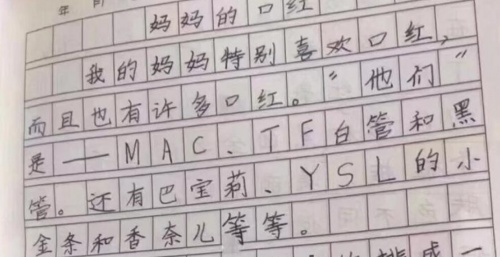 妈妈的口红
我的妈妈特别喜欢口红，
而且也有许多口红。“他们”
是——MAC、TF白管和黑
管。还有巴宝莉、YSL的小
金条和香奈儿等等。